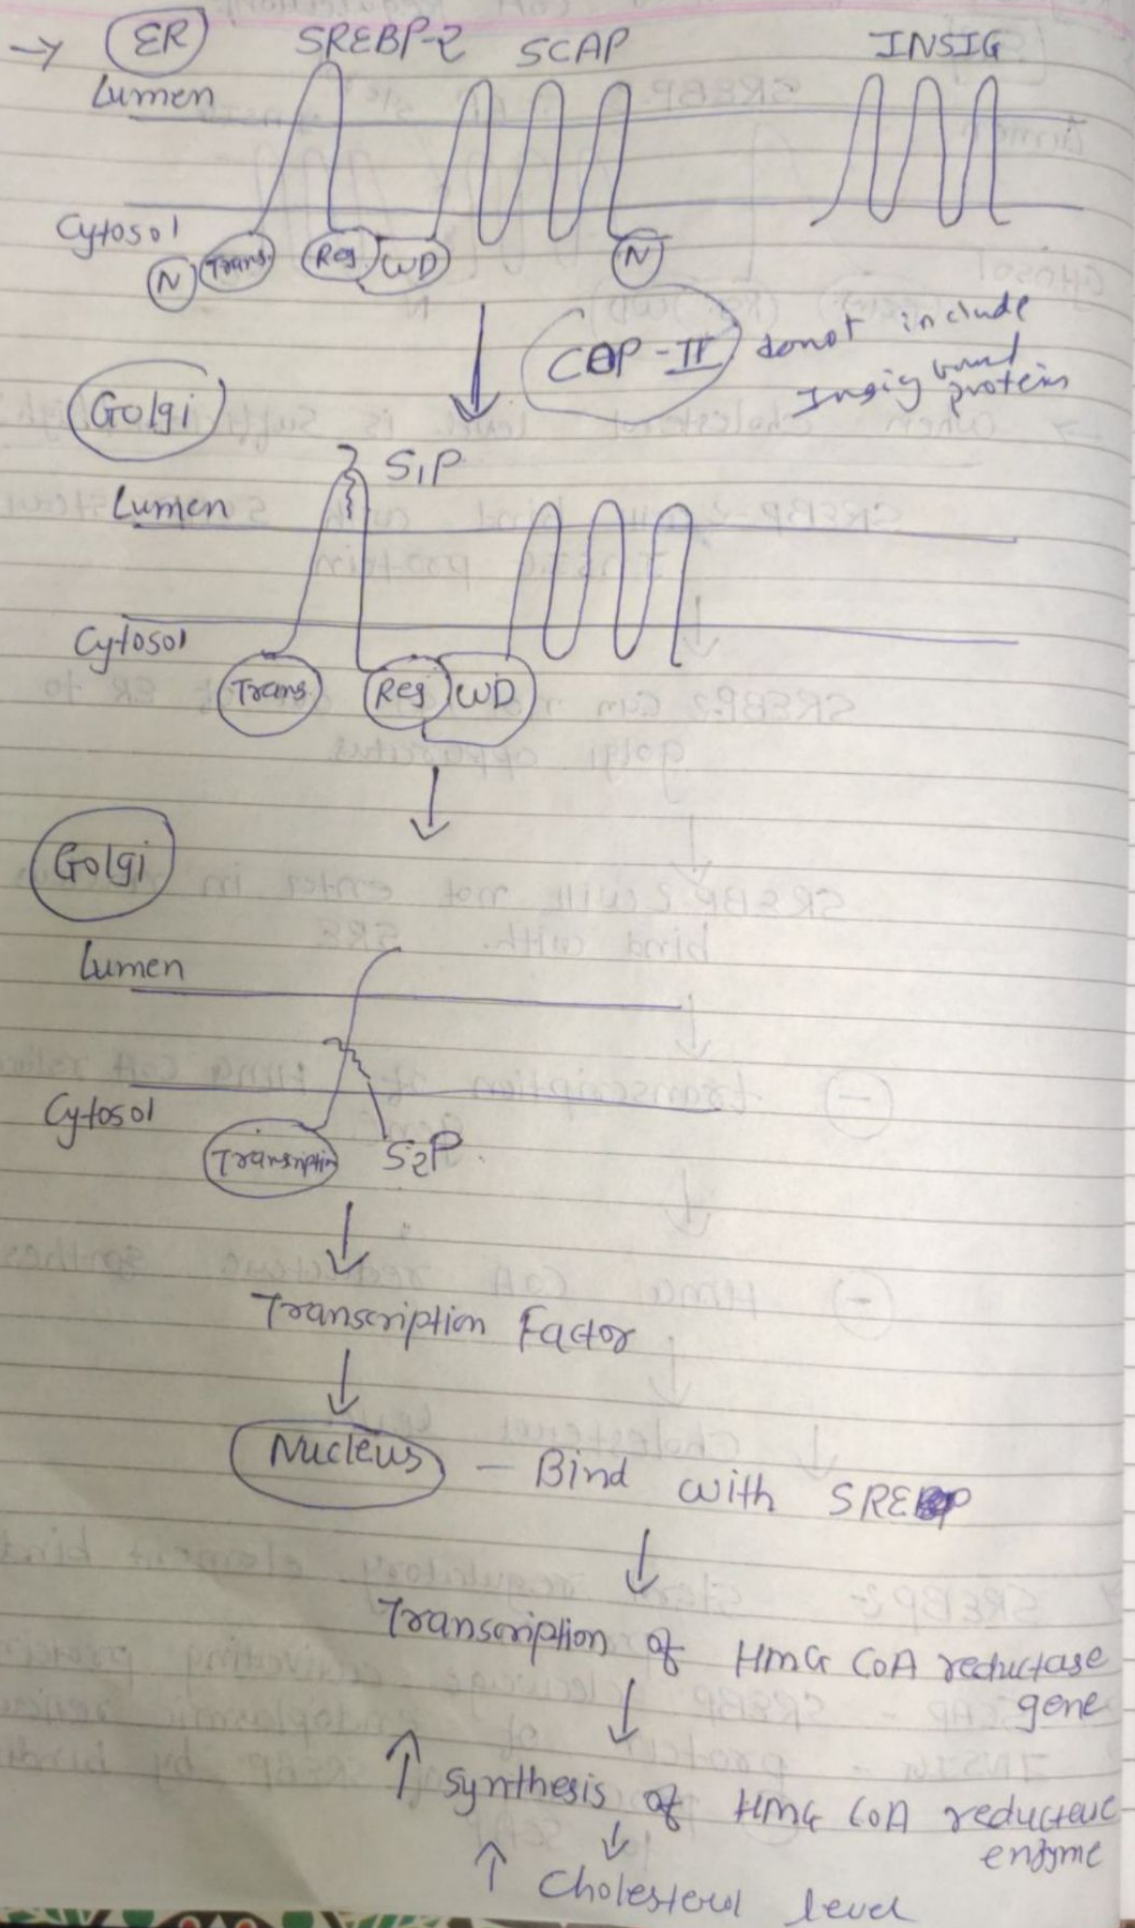 → ER SREBP-2 SCAP INSIG
Lumen
Cytosol
N Trans. Reg WD N
COP-II donot include
Insig bound
protein
Golgi
S1P
Lumen
Cytosol
Trans Reg WD
Golgi
Lumen
Cytosol
Transription S2P.
Transcription Factor
Nucleus - Bind with SRE
Transcription of HMG CoA reductase
gene
↑ synthesis of HMG CoA reductase
enzyme
↑ Cholesterol level